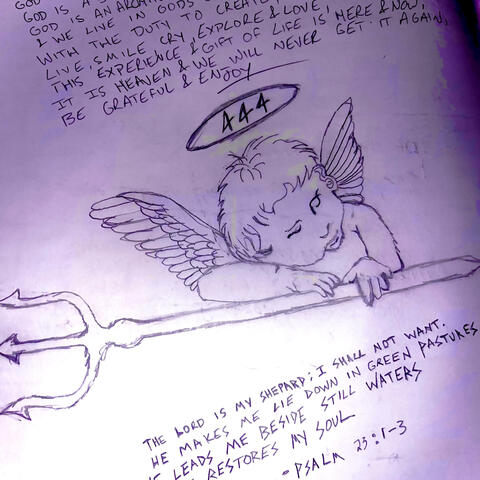 GOD IS A
GOD IS AN ANARCH
& WE LIVE IN GODS
WITH THE DUTY TO CREATE
LIVE, SMILE, CRY, EXPLORE & LOVE,
THIS EXPERIENCE & GIFT OF LIFE IS HERE & NOW,
IT IS HEAVEN & WE WILL NEVER GET IT AGAIN,
BE GRATEFUL & ENJOY
444
THE LORD IS MY SHEPARD; I SHALL NOT WANT.
HE MAKES ME LIE DOWN IN GREEN PASTURES
LEADS ME BESIDE STILL WATERS
RESTORES MY SOUL
- PSALM 23:1-3